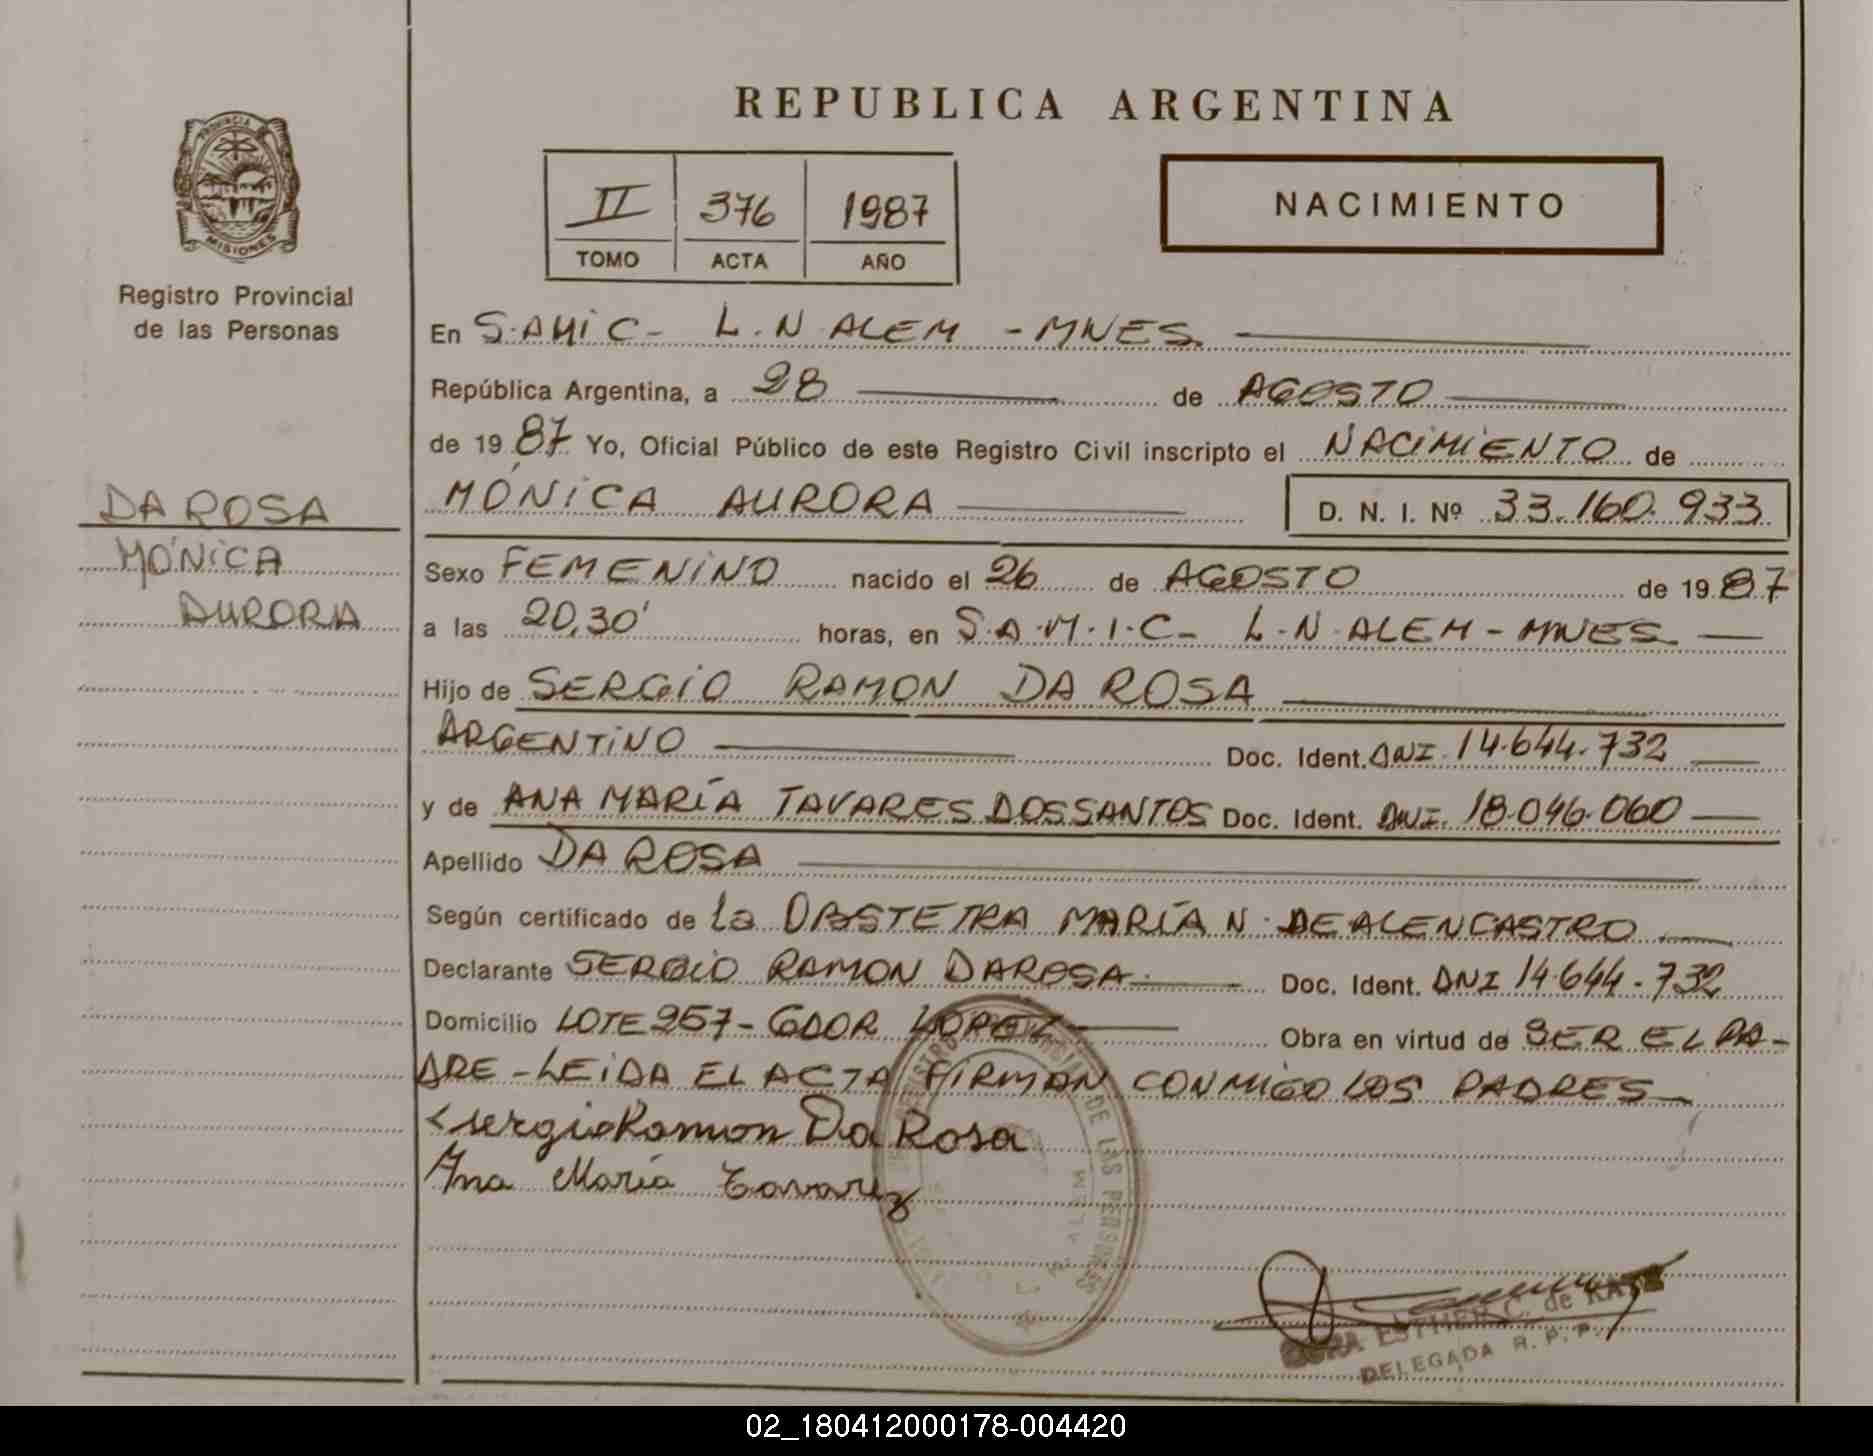 REPUBLICA ARGENTINA
PROVINCIA
MISIONES
Registro Provincial
de las Personas
II 376 1987
TOMO ACTA AÑO
NACIMIENTO
DA ROSA
MÓNICA
AURORA
En S.AMIC- L.N ALEM - MNES.
República Argentina, a 28 de AGOSTO
de 1987 Yo, Oficial Público de este Registro Civil inscripto el NACIMIENTO de
MÓNICA AURORA D. N. I. Nº 33.160.933
Sexo FEMENINO nacido el 26 de AGOSTO de 1987
a las 20,30' horas, en S.A.M.I.C- L.N ALEM - MNES
Hijo de SERGIO RAMON DA ROSA
ARGENTINO Doc. Ident. DNI. 14.644.732
y de ANA MARÍA TAVARES DOSSANTOS Doc. Ident. DNI. 18.046.060
Apellido DA ROSA
Según certificado de la OBSTETRA MARÍA N. DE ALENCASTRO
Declarante SERGIO RAMON DAROSA Doc. Ident. DNI 14.644.732
Domicilio LOTE 257- GDOR LOPEZ Obra en virtud de SER EL PA-
DRE - LEIDA EL ACTA FIRMAN CONMIGO LOS PADRES
Sergio Ramon Da Rosa
Ana María Tavarez
DE LAS PERSONAS
ALEM
ESTHER C. de KATZ
DELEGADA R. P. P.
02_180412000178-004420